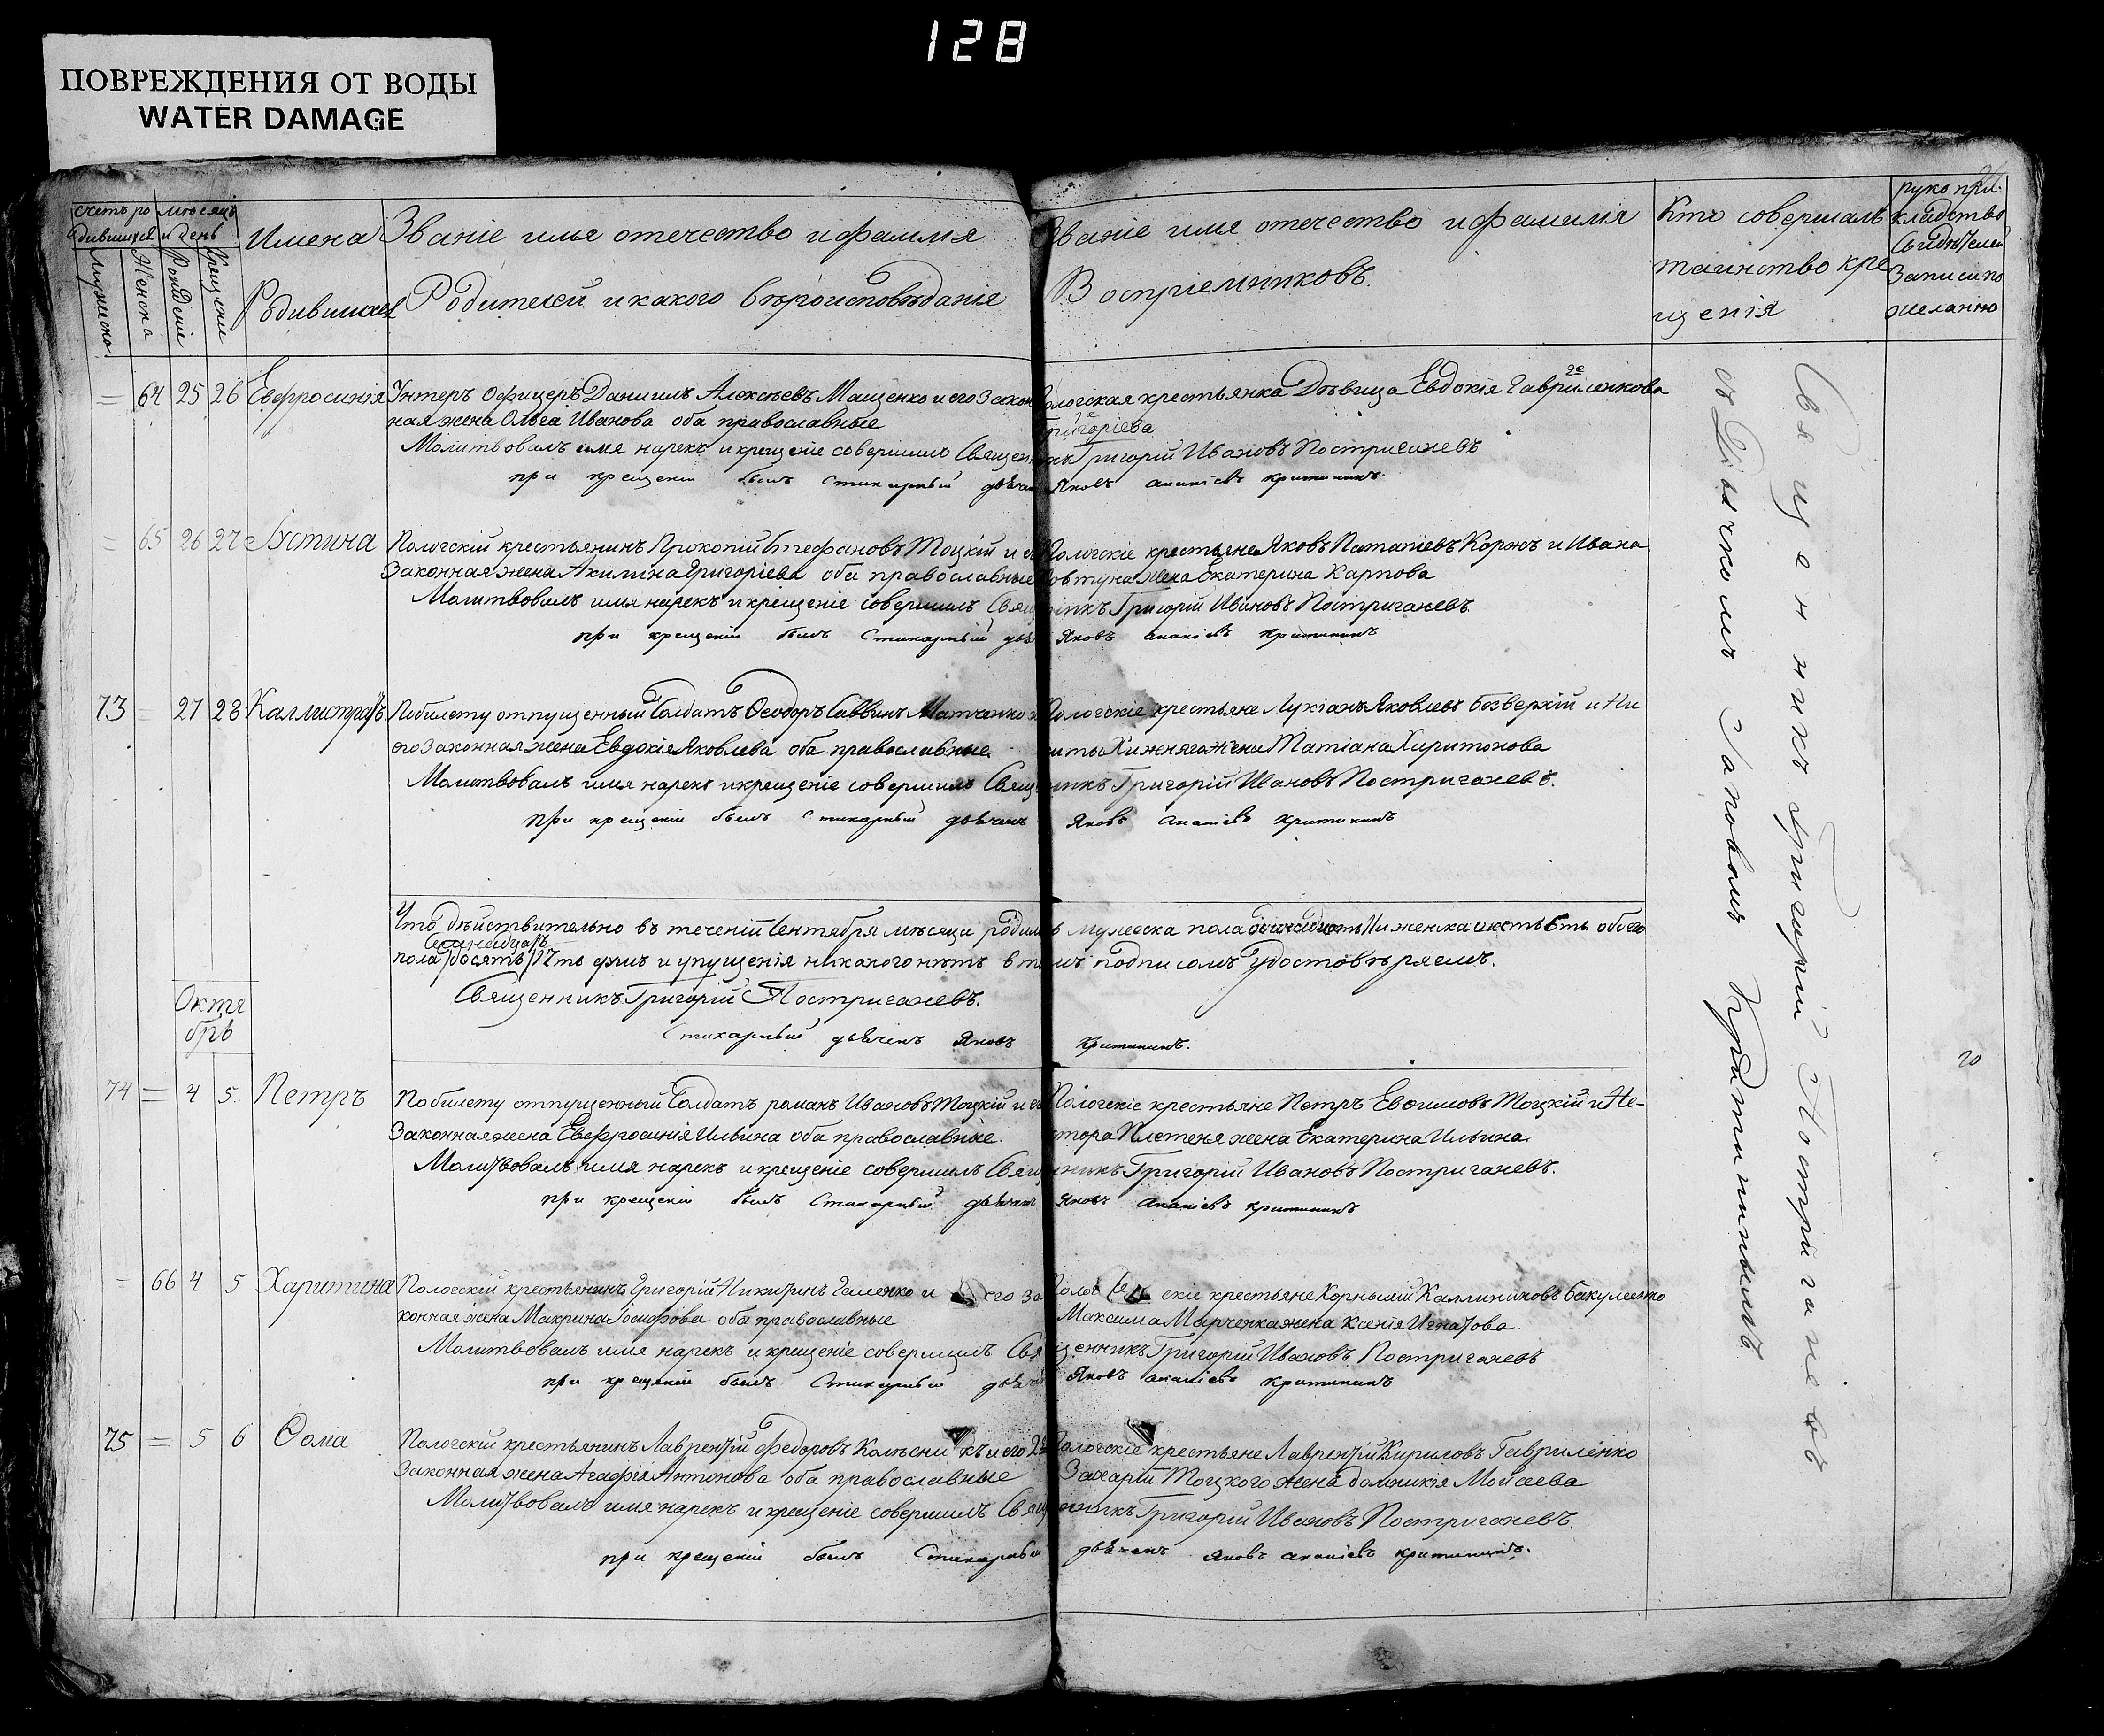 128
ПОВРЕЖДЕНИЯ ОТ ВОДЫ
WATER DAMAGE
Счетъ ро
дившихся
Мужеска
Женска
мѣсяцъ
и день
Рожденіе
Крещеніе
Имена
Родившихся
Званіе имя отечество и фамилія
Родителей и какого вѣроисповѣданія
Званіе имя отечество и фамилія
Воспріемниковъ.
Кто совершалъ
таинство кре
щенія
рукопри.
кладство
Свидѣтелей
Записи по
желанію
= 64 25 26 Евфросинія Унтеръ Офицеръ Даніилъ Алексѣевъ Мащенко и его Закон Пологская крестьянка Дѣвица Евдокія Гавриленкова
ная жена Ольга Иванова оба православные Григоріева
Молитвовалъ имя нарекъ и крещеніе совершилъ Священникъ Григорій Ивановъ Постриганевъ
при крещеніи былъ Стихарный дьячекъ Яковъ Ананіевъ Критининъ.
= 65 26 27 Іустина Пологскій крестьянинъ Прокопій Стефановъ Тоцкій и его Пологскіе крестьяне Яковъ Потапіевъ Коржъ и Ивана
Законная жена Акилина Григоріева оба православные Ковтуна жена Екатерина Карпова
Молитвовалъ имя нарекъ и крещеніе совершилъ Священникъ Григорій Ивановъ Постриганевъ
при крещеніи былъ Стихарный дьячекъ Яковъ Ананіевъ Критининъ
73 = 27 28 Каллистратъ По билету отпущенный Солдатъ Ѳеодоръ Саввинъ Матченко и Пологскіе крестьяне Лукіанъ Яковлевъ Безверхій и Ни
его Законная жена Евдокія Яковлева оба православные киты Хижняга жена Татіана Харитонова
Молитвовалъ имя нарекъ и крещеніе совершилъ Священникъ Григорій Ивановъ Постриганевъ.
при крещеніи былъ Стихарный дьячекъ Яковъ Ананіевъ Критининъ
Что дѣйствительно въ теченіи Сентября мѣсяца родилось мужеска пола женска шесть 6ть обоего
пола 17ть душъ и упущенія никакого нѣтъ в томъ подписомъ Удостовѣряемъ.
Священникъ Григорій Постриганевъ.
Стихарный дьячекъ Яковъ Критининъ.
Октя
брь
74 = 4 5 Петръ По билету отпущенный Солдатъ романъ Ивановъ Тоцкій и его Пологскіе крестьяне Петръ Евѳимовъ Тоцкій и Не-
Законная жена Евфросинія Ильина оба православные. стора Плетеня жена Екатерина Ильина
Молитвовалъ имя нарекъ и крещеніе совершилъ Священникъ Григорій Ивановъ Постриганевъ.
при крещеніи былъ Стихарный дьячекъ Яковъ Ананіевъ Критининъ
= 66 4 5 Харитина Пологскій крестьянинъ Григорій Никитинъ Геменко и его За Пологскіе крестьяне Корнилій Каллиниковъ Бакуменко
конная жена Макрина Іосифова оба православные Максима Марченка жена Ксенія Игнатова
Молитвовалъ имя нарекъ и крещеніе совершилъ Священникъ Григорій Ивановъ Постриганевъ
при крещеніи былъ Стихарный дьячекъ Яковъ Ананіевъ Критининъ
75 = 5 6 Ѳома Пологскій крестьянинъ Лаврентій Федоровъ Колѣсникъ и его Пологскіе крестьяне Лаврентій Кириловъ Гавриленко
Законная жена Агафія Антонова оба православные Захарія Тоцкого жена Домникія Мойсеева
Молитвовалъ имя нарекъ и крещеніе совершилъ Священникъ Григорій Ивановъ Постриганевъ.
при крещеніи былъ Стихарный дьячекъ Яковъ Ананіевъ Критининъ.
Священникъ Григорій Постриганевъ
съ Дьячкомъ Яковомъ Критининымъ
20